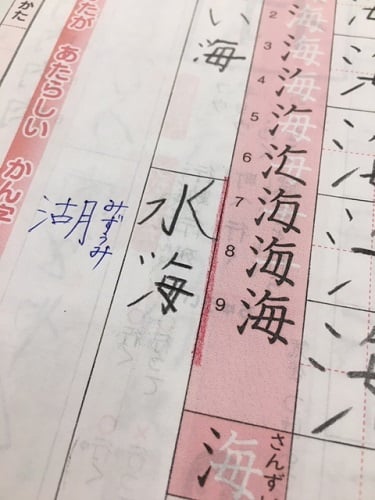 2
3
4
5
6
7
8
9
海
さんず
海
い海
水海
みずうみ
湖
かた
たが あたらしい かん字